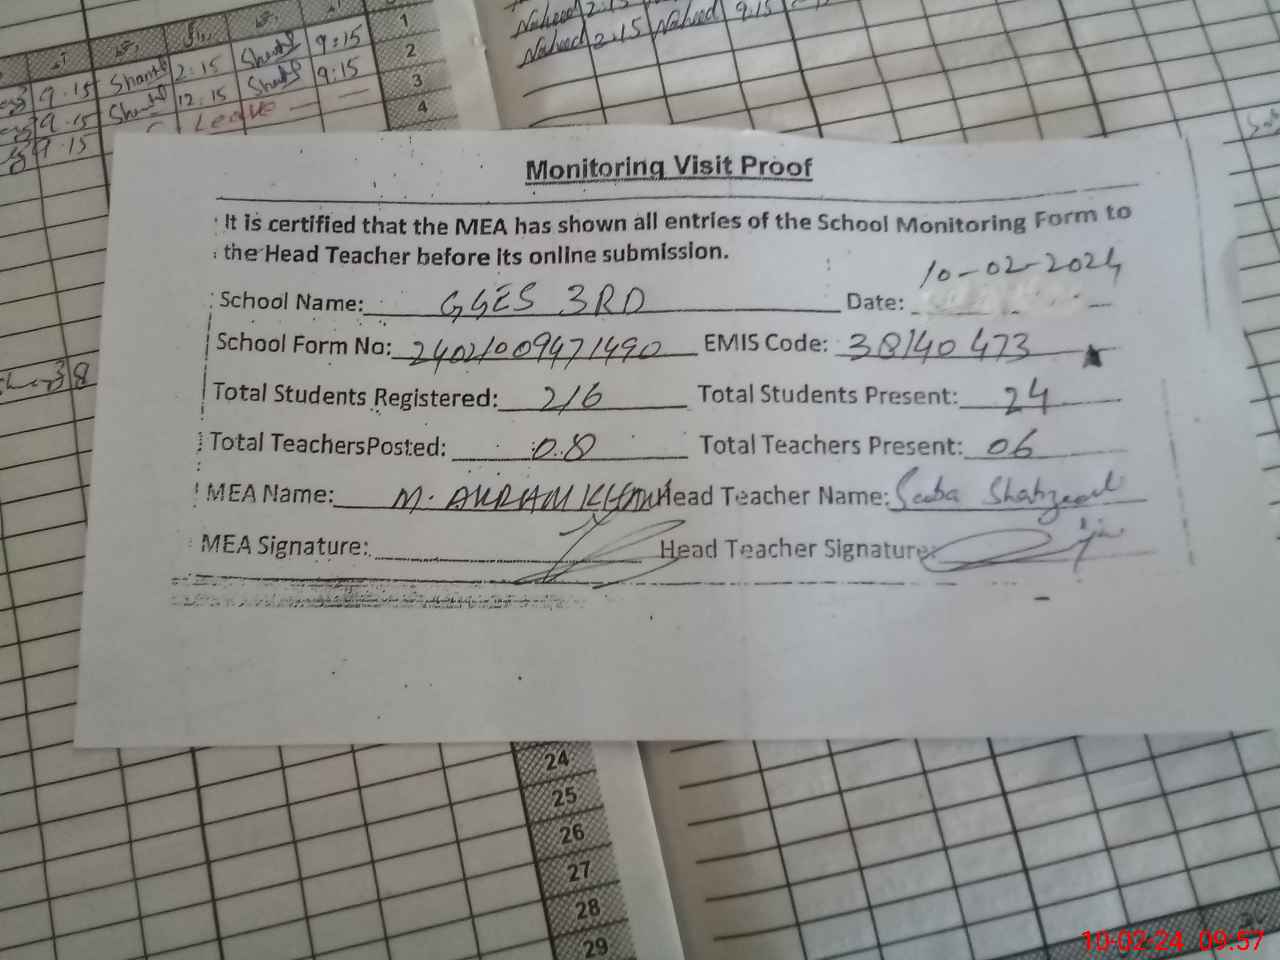 9:15 Shant 2:15 Shant 9:15 1
9:15 Shant 12:15 Shant 9:15 2
9:15 Leave — — 3
4
Naheed 2:15 Naheed 9:15
Naheed 2:15
Monitoring Visit Proof
It is certified that the MEA has shown all entries of the School Monitoring Form to
the Head Teacher before its online submission.
10-02-2024
School Name: GGES 3RD Date:
School Form No: 24021009471490 EMIS Code: 38140473
Total Students Registered: 216 Total Students Present: 24
Total TeachersPosted: 08 Total Teachers Present: 06
MEA Name: M. AKRAM KHAN Head Teacher Name: Saba Shahzad
MEA Signature: Head Teacher Signature:
24
25
26
27
28
29
10-02-24 09:57